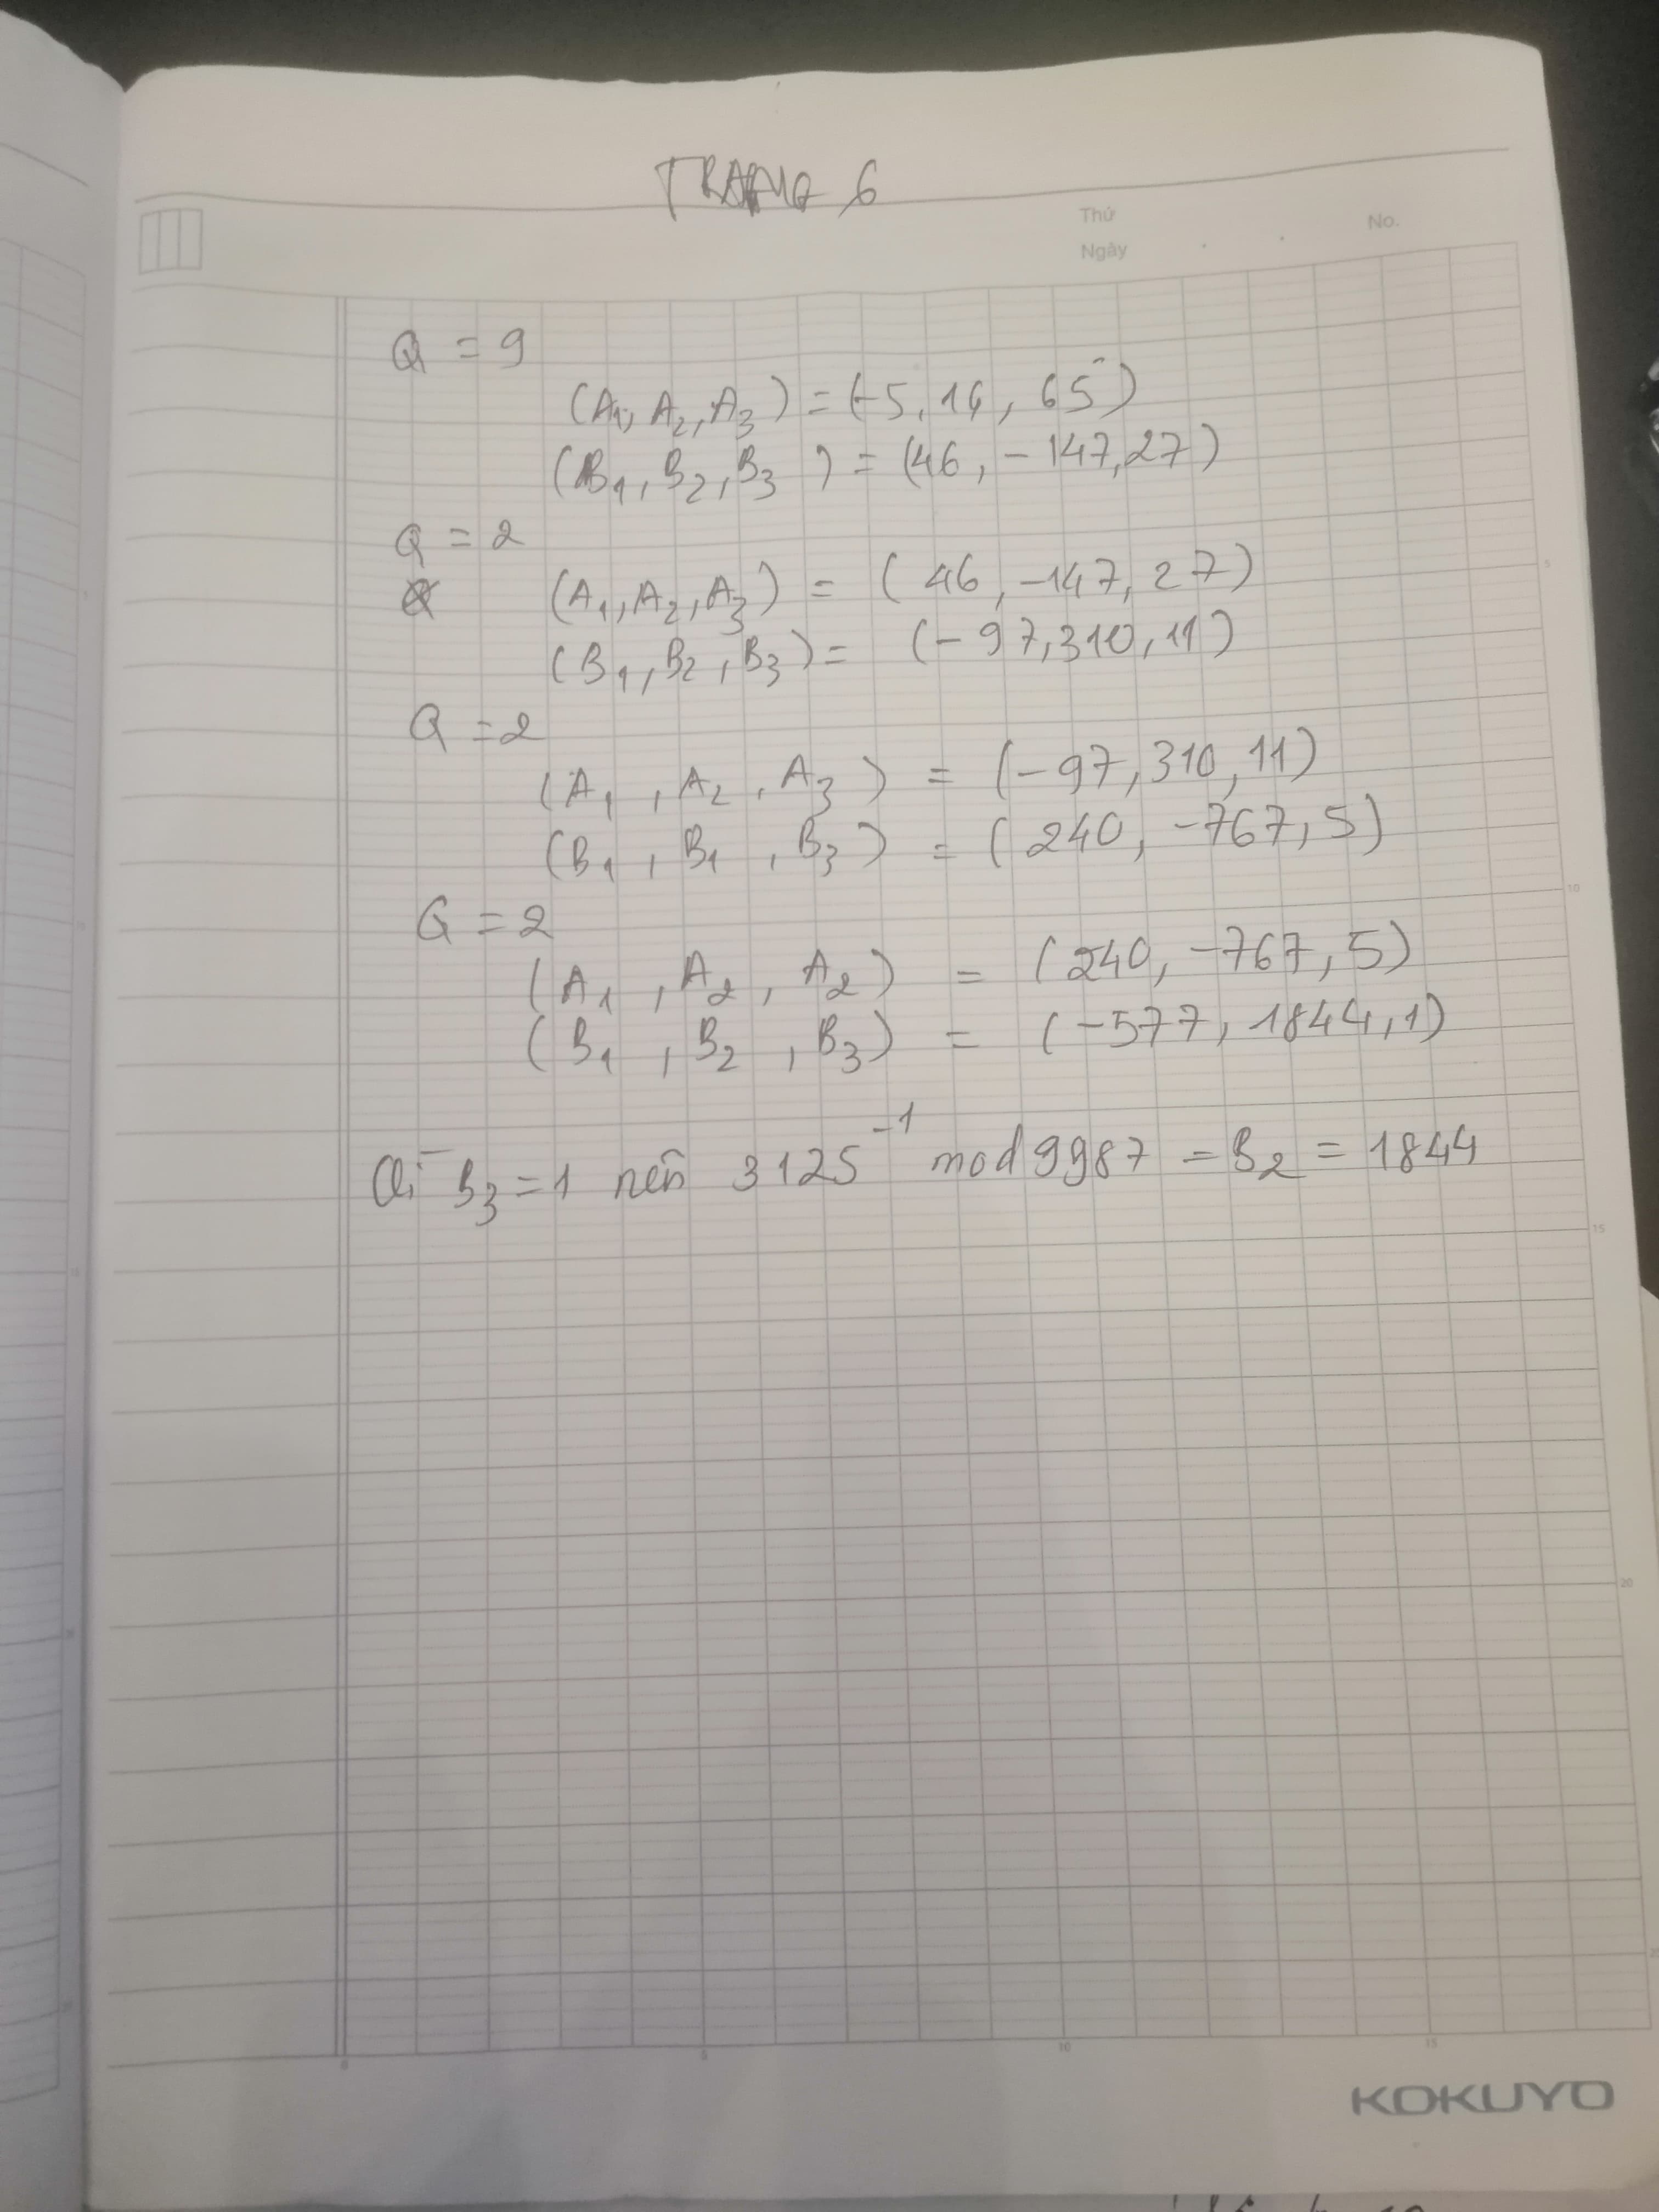 TRANG 6
Thứ
Ngày
No.
Q = 9
(A1, A2, A3) = (-5, 16, 65)
(B1, B2, B3) = (46, -147, 27)
Q = 2
(A1, A2, A3) = (46, -147, 27)
(B1, B2, B3) = (-97, 310, 11)
Q = 2
(A1, A2, A3) = (-97, 310, 11)
(B1, B1, B3) = (240, -767, 5)
Q = 2
(A1, A2, A2) = (240, -767, 5)
(B1, B2, B3) = (-577, 1844, 1)
Vì B3 = 1 nên 3125^-1 mod 9987 = B2 = 1844
5
10
15
20
0 5 10 15
KOKUYO